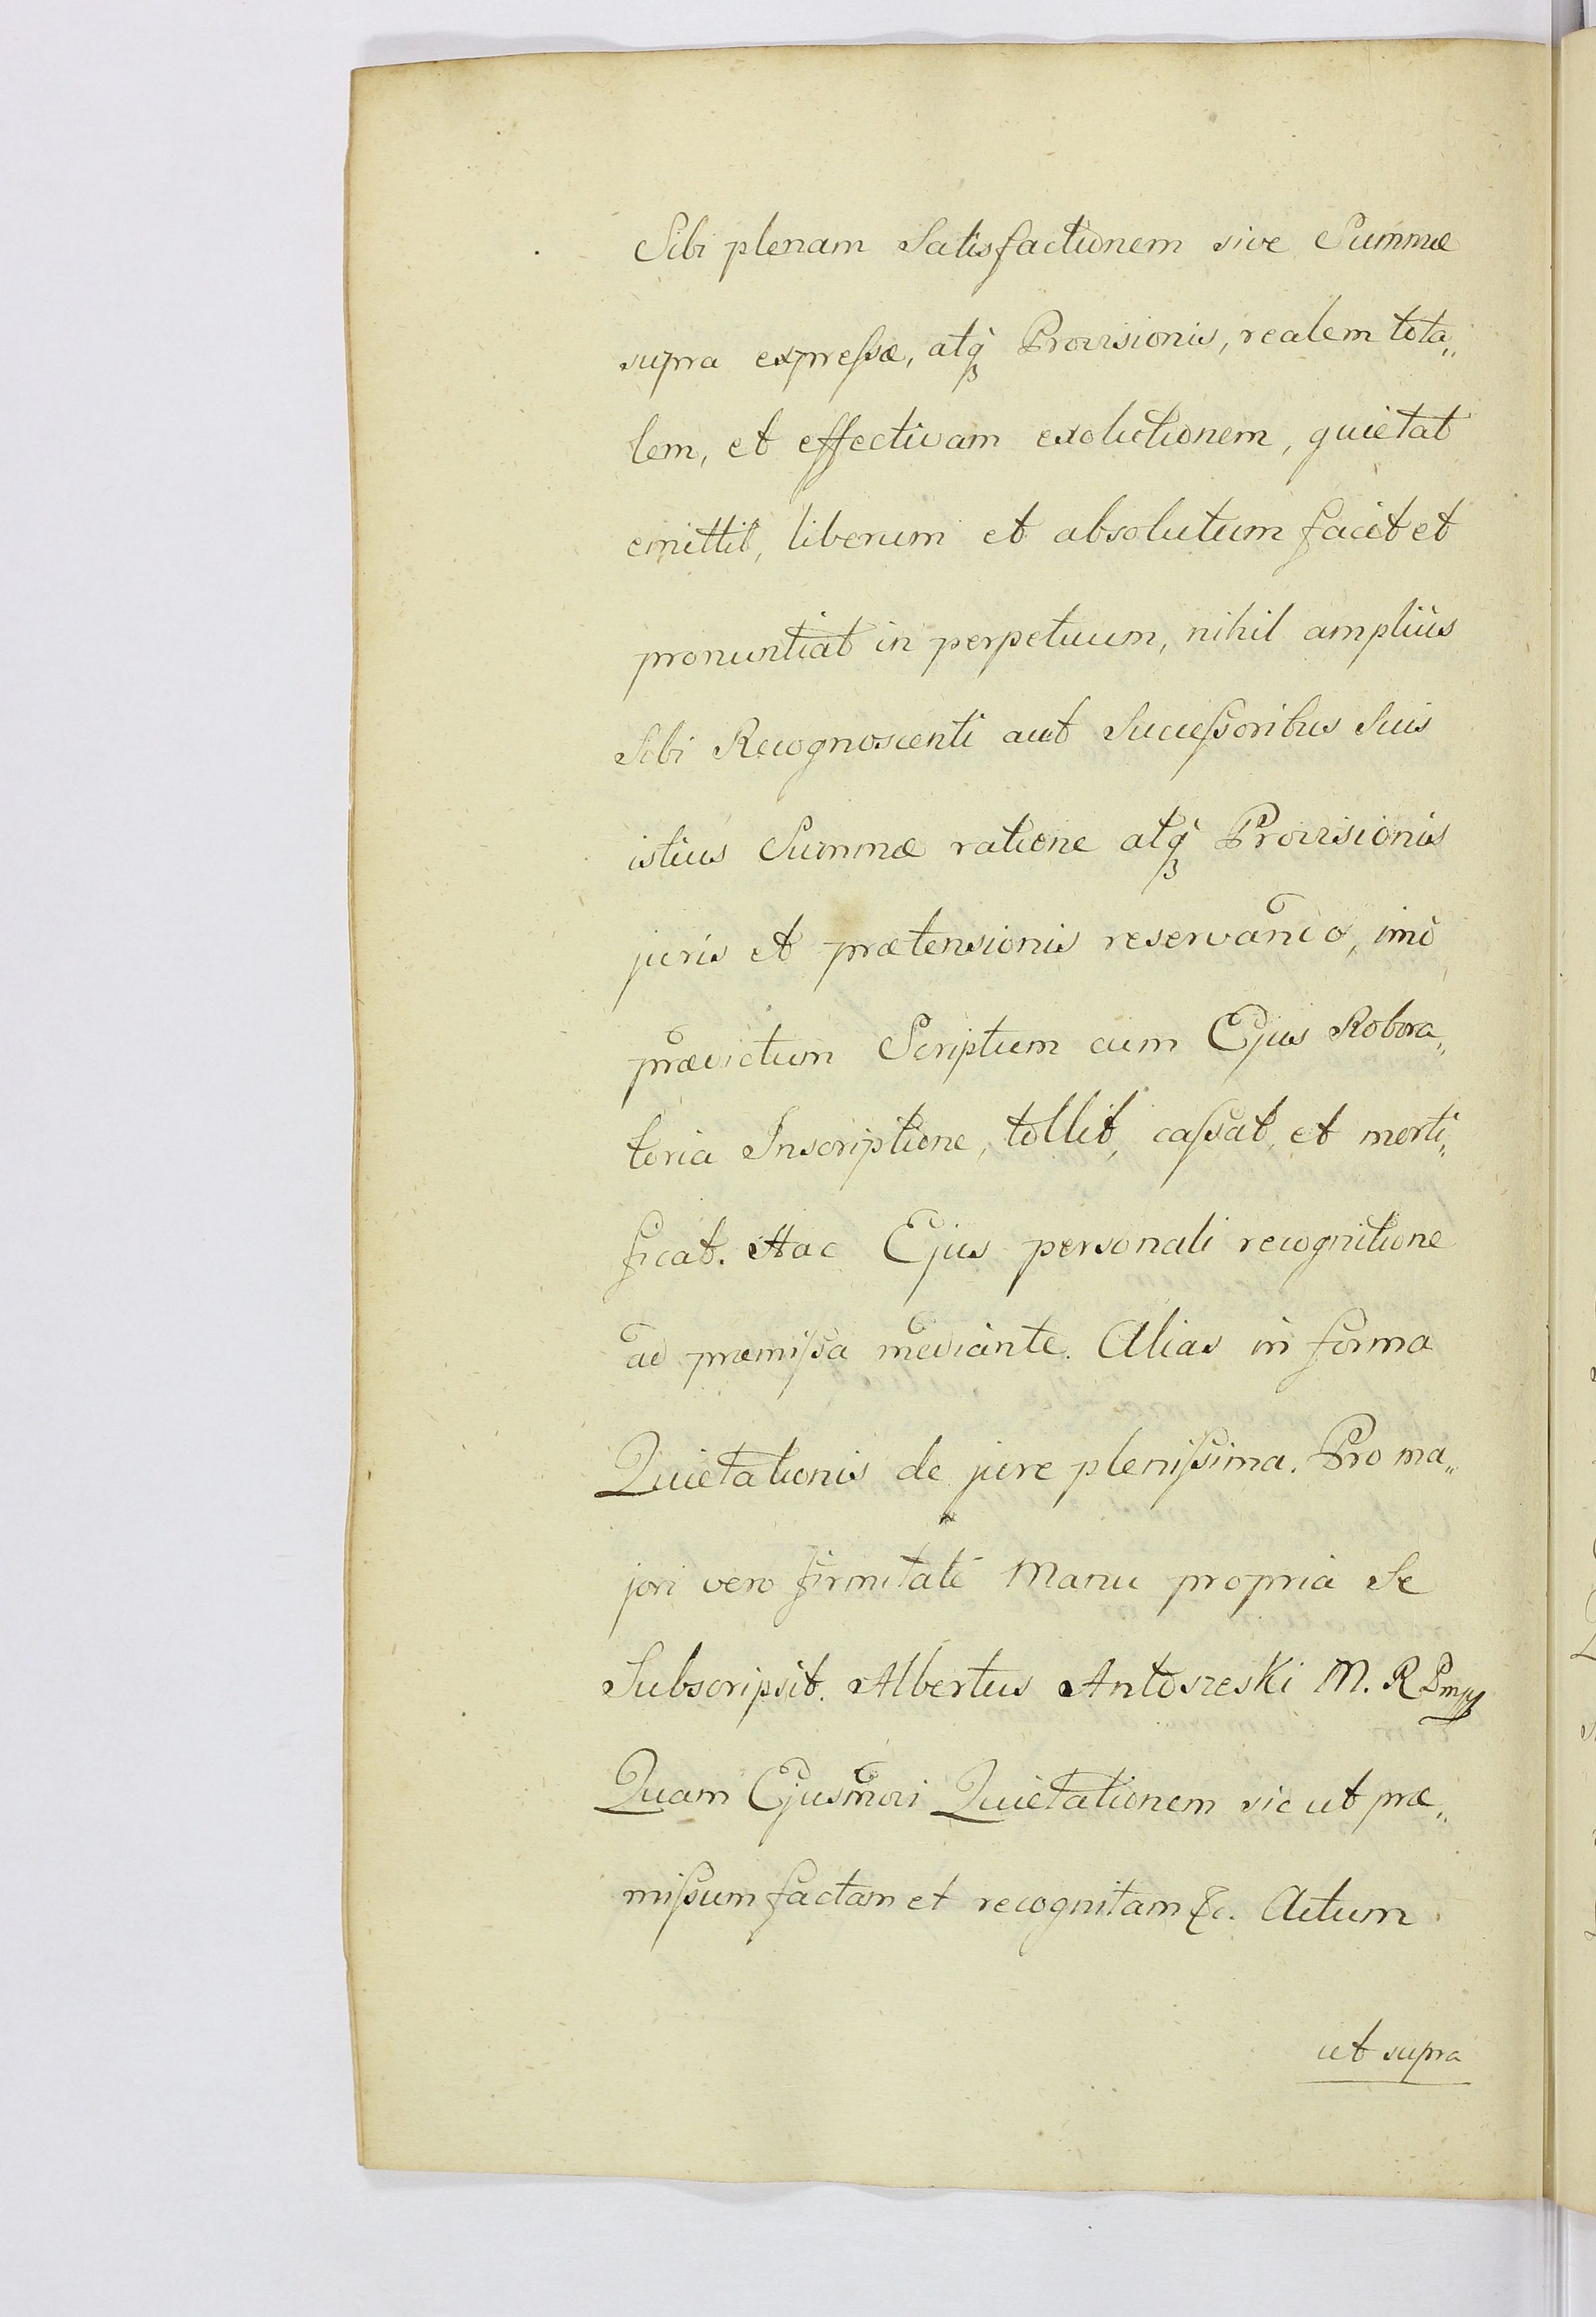 Sibi plenam Satisfactionem sive Summæ
supra expreſsæ, atqꝫ Provisionis, realem tota„
lem, et effectivam exolutionem, quietat
emittit, liberum et absolutum facit et
pronuntiat in perpetuum, nihil ampliùs
Sibi Recognoscenti aut Succeſsoribus Suis
istius Summæ ratione atqꝫ Provisionis
juris et prætensionis reservando, imò
prædictum Scriptum cum Ejus Robora„
toria Inscriptione, tollit, caſsat, et morti„
ficat. Hac Ejus personali recognitione
ad præmiſsa mediante. Alias in forma
Quietationis de jure pleniſsima. Pro ma„
jori vero firmitate Manu propria Se
Subscripsit. Albertus Antoszeski M. R Pmpp
Quam Ejusmodi Quietationem sic ut præ„
miſsum factam et recognitam &c. Actum
ut supra